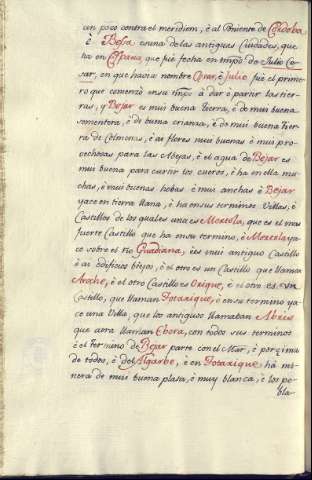 un poco contra el meridien, è al Poniente de Cordoba
è Bexa es una de las antiguas Ciudades, que
ha en España, que fue fecha en tmpo de Julio Ce-
sar, en que havia nombre Cesar, è Julio fue el prime-
ro que comenzò en su tmpo à dar è partir las tier-
ras, y Bejar es mui buena tierra, è de mui buena
sementera, è de buena crianza, è de mui buena tier-
ra de Colmenas, è ai flores mui buenas è mui pro-
vechosas para las Abejas, è el agua de Bejar es
mui buena para curtir los cueros, è ha en ella mu-
chas, è mui buenas hobas è mui anchas è Bejar
yace en tierra llana, è ha en sus terminos Villas, è
Castillos de los quales una es Mertola, que es el mas
fuerte Castillo que ha en su termino, è Mertola ya-
ce sobre el rio Guadiana, è es mui antiguo Castillo
è ai edificios viejos, è el otro es un Castillo que llaman
Aroche, è el otro Castillo es Orique, è el otro es un
Castillo, que llaman Totaxique, è en su termino ya-
ce una Villa, que los antiguos llamaban Abris
que aora llaman Ebora, con todos sus terminos
è el termino de Bejar parte con el Mar, è por cima
de todos, è del Algarbe, è en Totaxique ha mi-
nera de mui buena plata, è muy blanca, è los po-
bla-